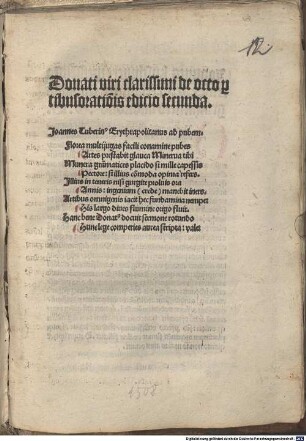 12.
Donati viri clarissimi de octo p
tibus orationis editio secunda.
Joannes Tuberinus Erythrapolitanus ad pubem.
Florea multijugas facili conamine pubes
Artes prestabit glauca Minerva tibi
Munera grammatices placido si melle capessis
Pectore: illius comoda opima
Illius in teneris nisi gurgite prolutis ora
Annis: ingenium (crede) manebit iners.
Artibus omnigenis iacit hec fundamina nempe
Hoc largo dives flumine origo fluit.
Hanc bene Donatus docuit sermone rotundo
Hunc lege comperies aurea scripta: vale
1508